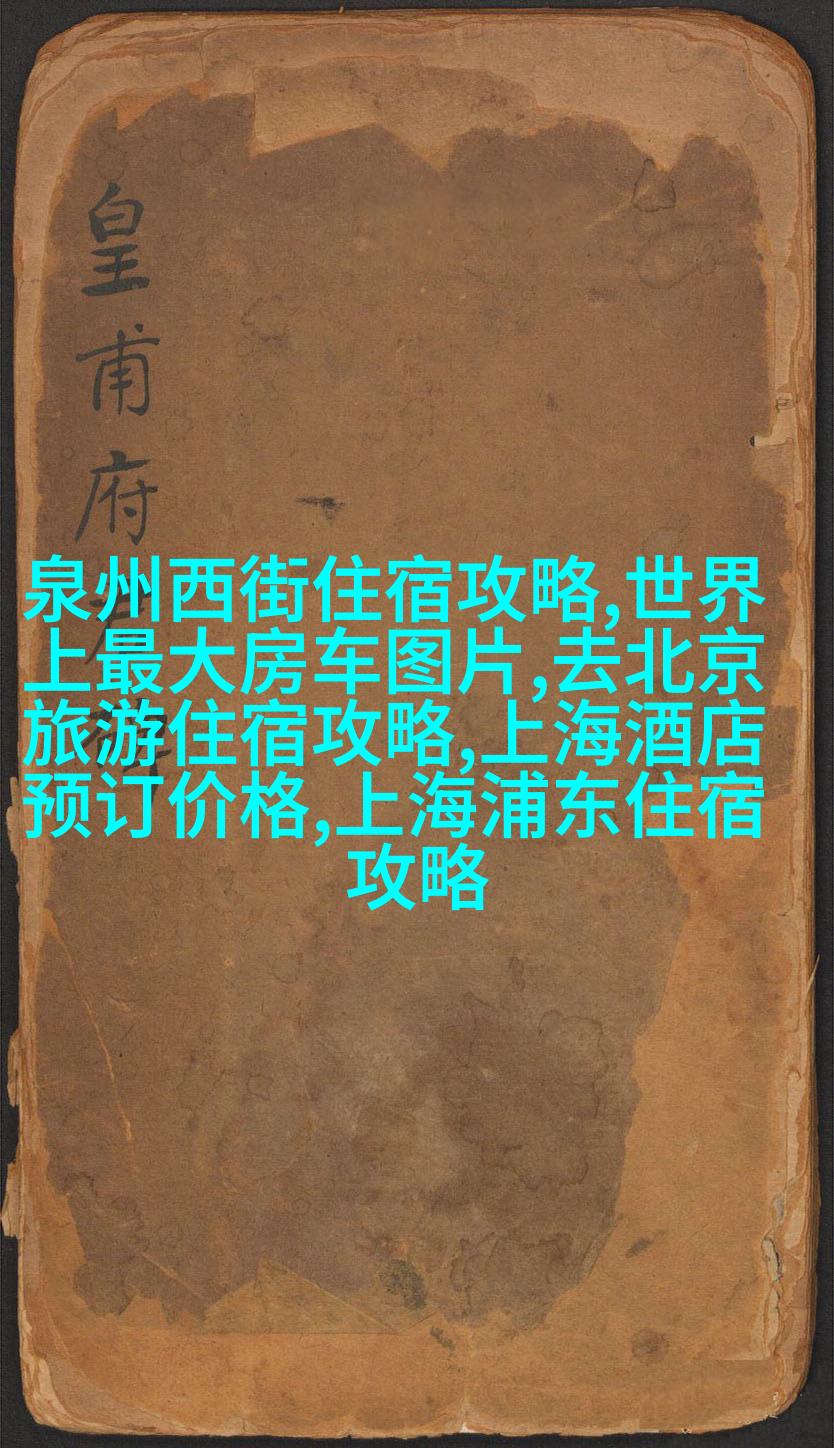 皇甫府
泉州西街住宿攻略,世界
上最大房车图片,去北京
旅游住宿攻略,上海酒店
预订价格,上海浦东住宿
攻略